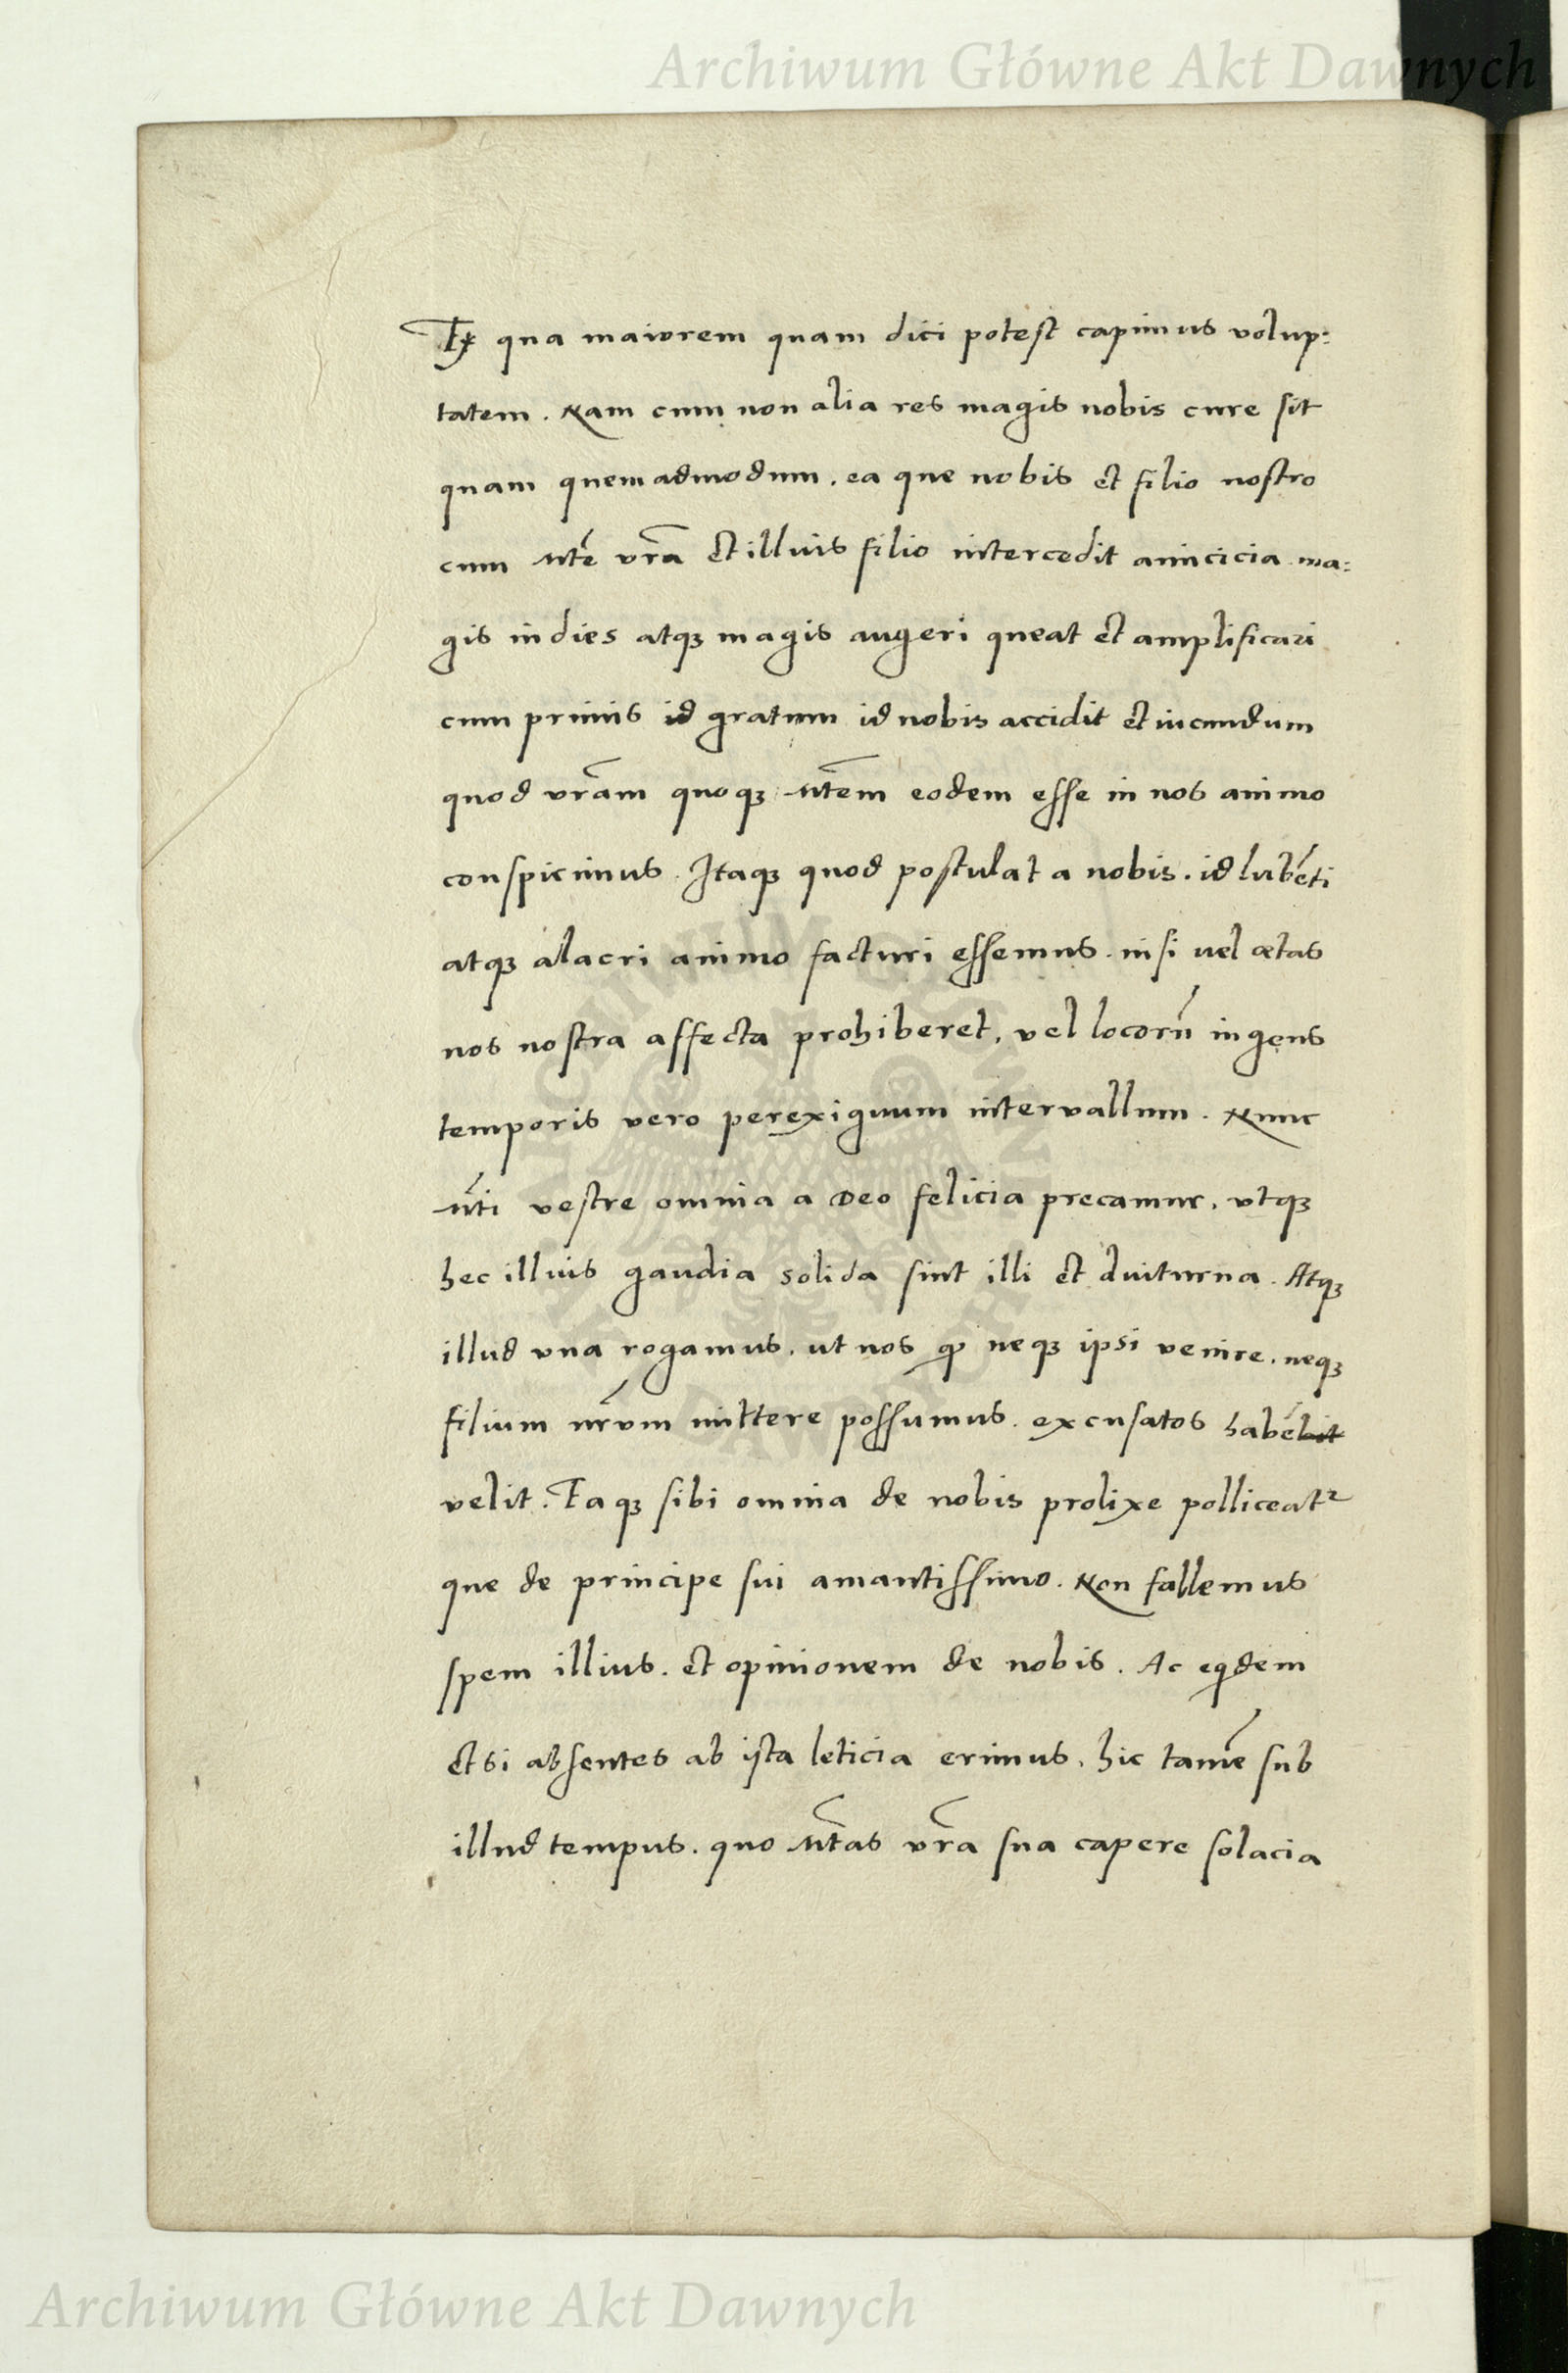 Archiwum Główne Akt Dawnych
Ex qua maiorem quam dici potest capimus volup:
tatem. Nam cum non alia res magis nobis cure sit
quam quemadmodum. ea que nobis et filio nostro
cum Mte vra et illius filio intercedit amicicia ma:
gis in dies atqꝫ magis augeri queat et amplificari
cum primis id gratum id nobis accidit et iucundum
quod vram quoqꝫ Mtem eodem esse in nos animo
conspicimus. Itaqꝫ quod postulat a nobis. id lubēti
atqꝫ alacri animo facturi essemus. nisi vel ætas
nos nostra affecta prohiberet, vel locorū ingens
temporis vero perexiguum intervallum. Nunc
Mti vestre omnia a Deo felicia precamur. utqꝫ
hec illius gaudia solida sint illi et diuturna. Atqꝫ
illud una rogamus. ut nos qͥ neqꝫ ipsi venire. neqꝫ
filium nrum mittere possumus. excusatos habē
velit. Eaqꝫ sibi omnia de nobis prolixe polliceatᷣ
que de principe sui amantissimo. Non fallemus
spem illius. et opinionem de nobis. Ac eqͥdem
etsi absentes ab ista leticia erimus. hic tamē sub
illud tempus. quo Mtas vra sua capere solacia
Archiwum Główne Akt Dawnych